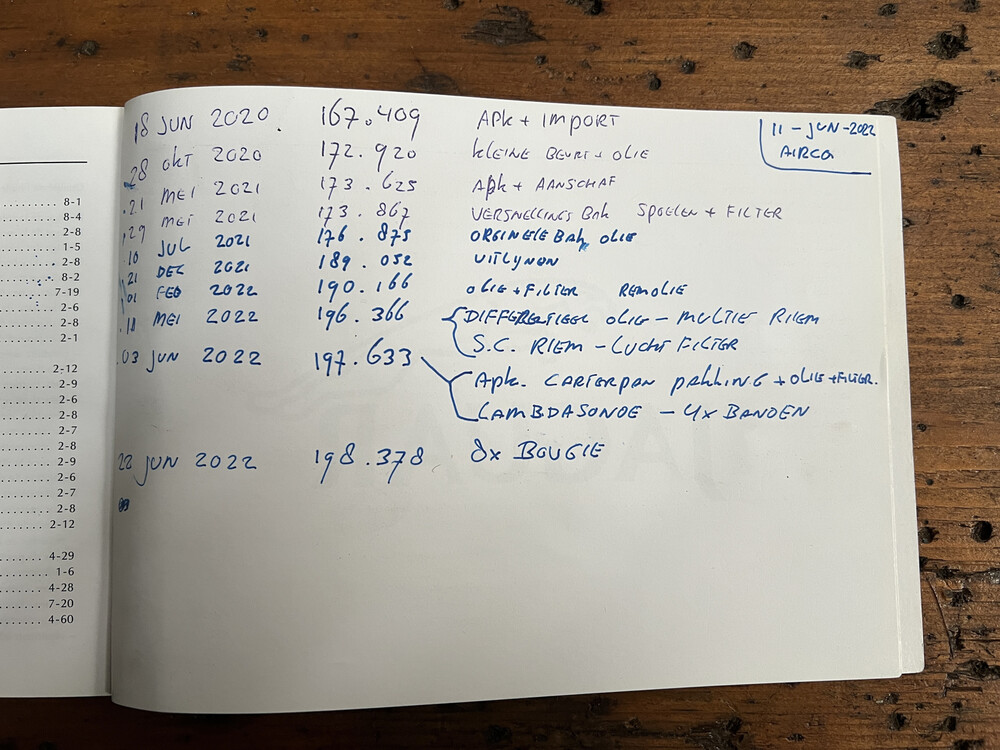 ........ 8-1
........ 8-4
........ 2-8
........ 1-5
........ 2-8
........ 8-2
........ 7-19
........ 2-6
........ 2-8
........ 2-1
........ 2-12
........ 2-9
........ 2-6
........ 2-8
........ 2-7
........ 2-8
........ 2-9
........ 2-6
........ 2-7
........ 2-8
........ 2-12
........ 4-29
........ 1-6
........ 4-28
........ 7-20
........ 4-60
11 - JUN - 2022
AIRCO
18 JUN 2020. 167.409 APK + IMPORT
28 OKT 2020 172.920 KLEINE BEURT + OLIE
21 MEI 2021 173.625 APK + AANSCHAF
29 MEI 2021 173.867 VERSNELLINGS BAK SPOELEN + FILTER
10 JUL 2021 176.875 ORGINELE BAK OLIE
21 DEC 2021 189.052 UITLYNON
01 FEB 2022 190.166 OLIE + FILTER REMOLIE
11 MEI 2022 196.366 DIFFERENTIEEL OLIE - MULTIE RIEM
S.C. RIEM - LUCHT FILTER
03 JUN 2022 197.633 APK. CARTERPAN PAKKING + OLIE + FILTER.
LAMBDASONDE - 4x BANDEN
22 JUN 2022 198.378 8x BOUGIE